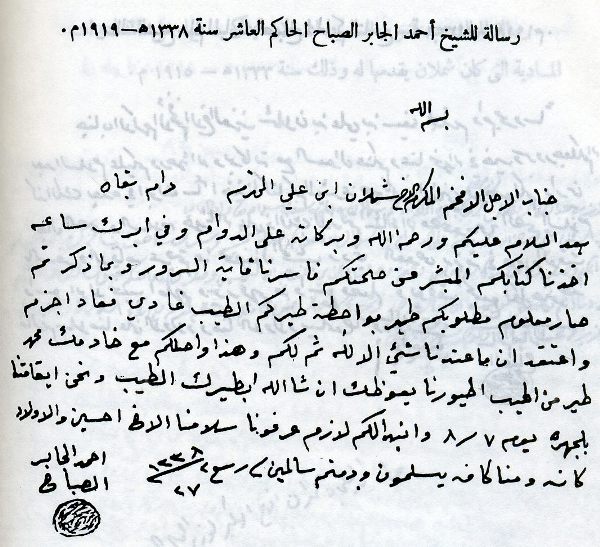 رسالة للشيخ أحمد الجابر الصباح الحاكم العاشر سنة ١٣٣٨ه‍ – ١٩١٩م.
بسم الله
جناب الاجل الافخم المكرم الاخ شملان ابن علي المحترم دام بقاه
بعد السلام عليكم ورحمة الله وبركاته على الدوام وفي ابرك ساعه
اخذنا كتابكم المبشر عن صحتكم فاسرنا غاية السرور وبماذكر تم
صار معلوم مطلوبكم طير بواسطة طيركم الطيب غادي فعاد اجزم
واعتقد ان ماعندنا شئي الا لله ثم لكم وهذا واصلكم مع خادمك محمد
طير من اطيب اطيورنا يعوظك ان شاالله ابطيرك الطيب ونحن ايقافنا
بالجهره يوم ٨/٧ وانتم الكم لازم عرفونا سلامنا الاخ احسين والاولاد
كافه ومنا كافه يسلمون ودمتم سالمين ربيع ٢ ١٣٣٨
٢٧
احمد الجابر
الصباح